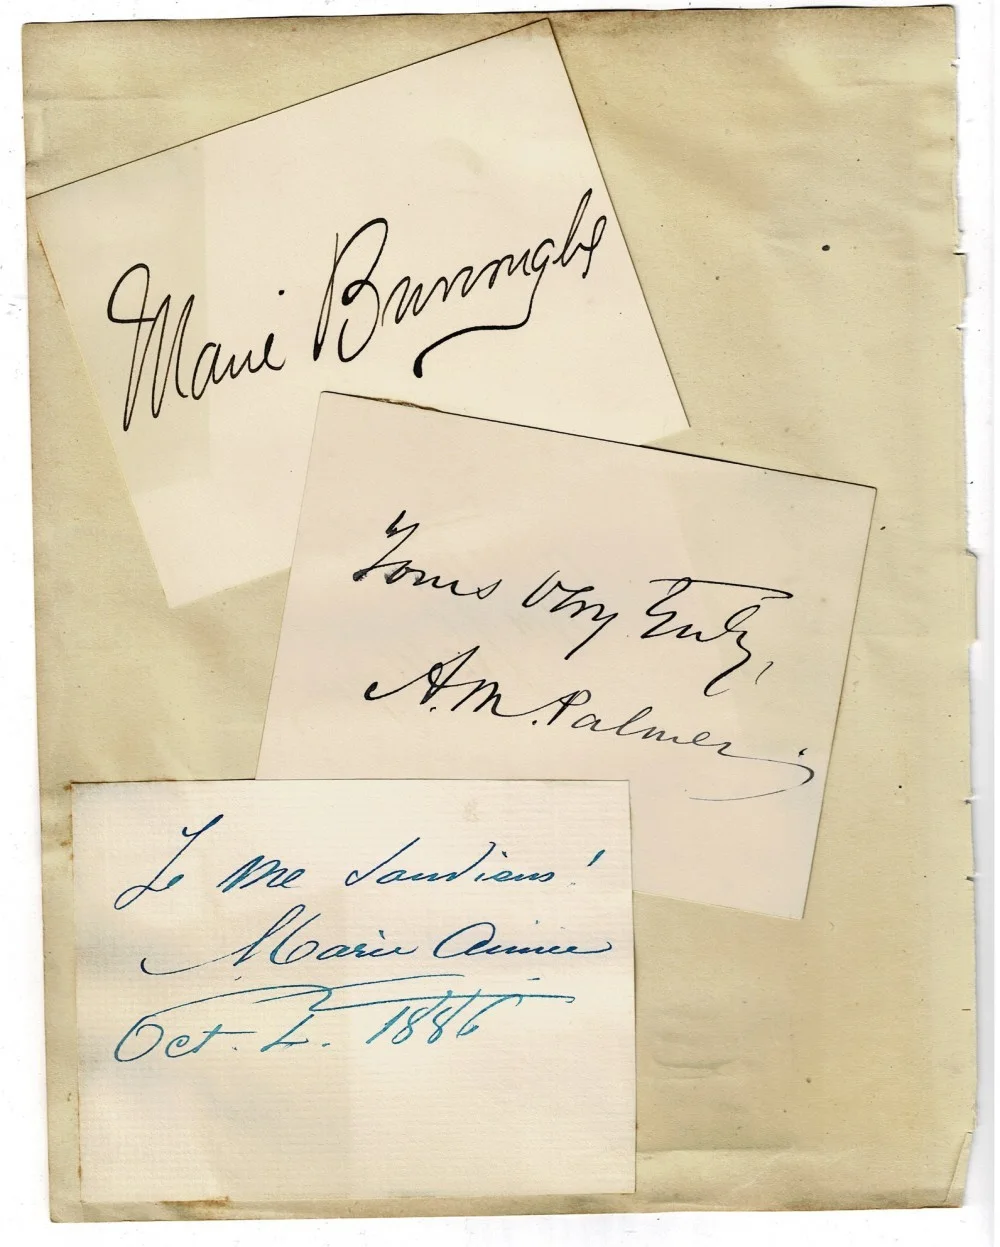 Marie Burroughs
Yours Very Truly,
A.M. Palmer
Je me souviens!
Marie Aimée
Oct. 2. 1886